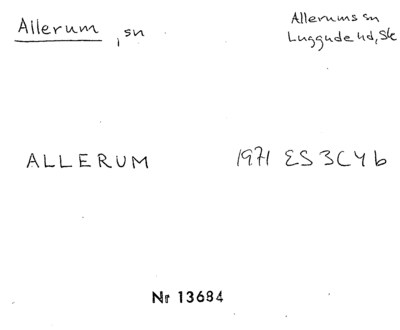 Allerum, sn
Allerums sn
Luggude hd, Sk
ALLERUM 1971 ES 3C4b
Nr 13684